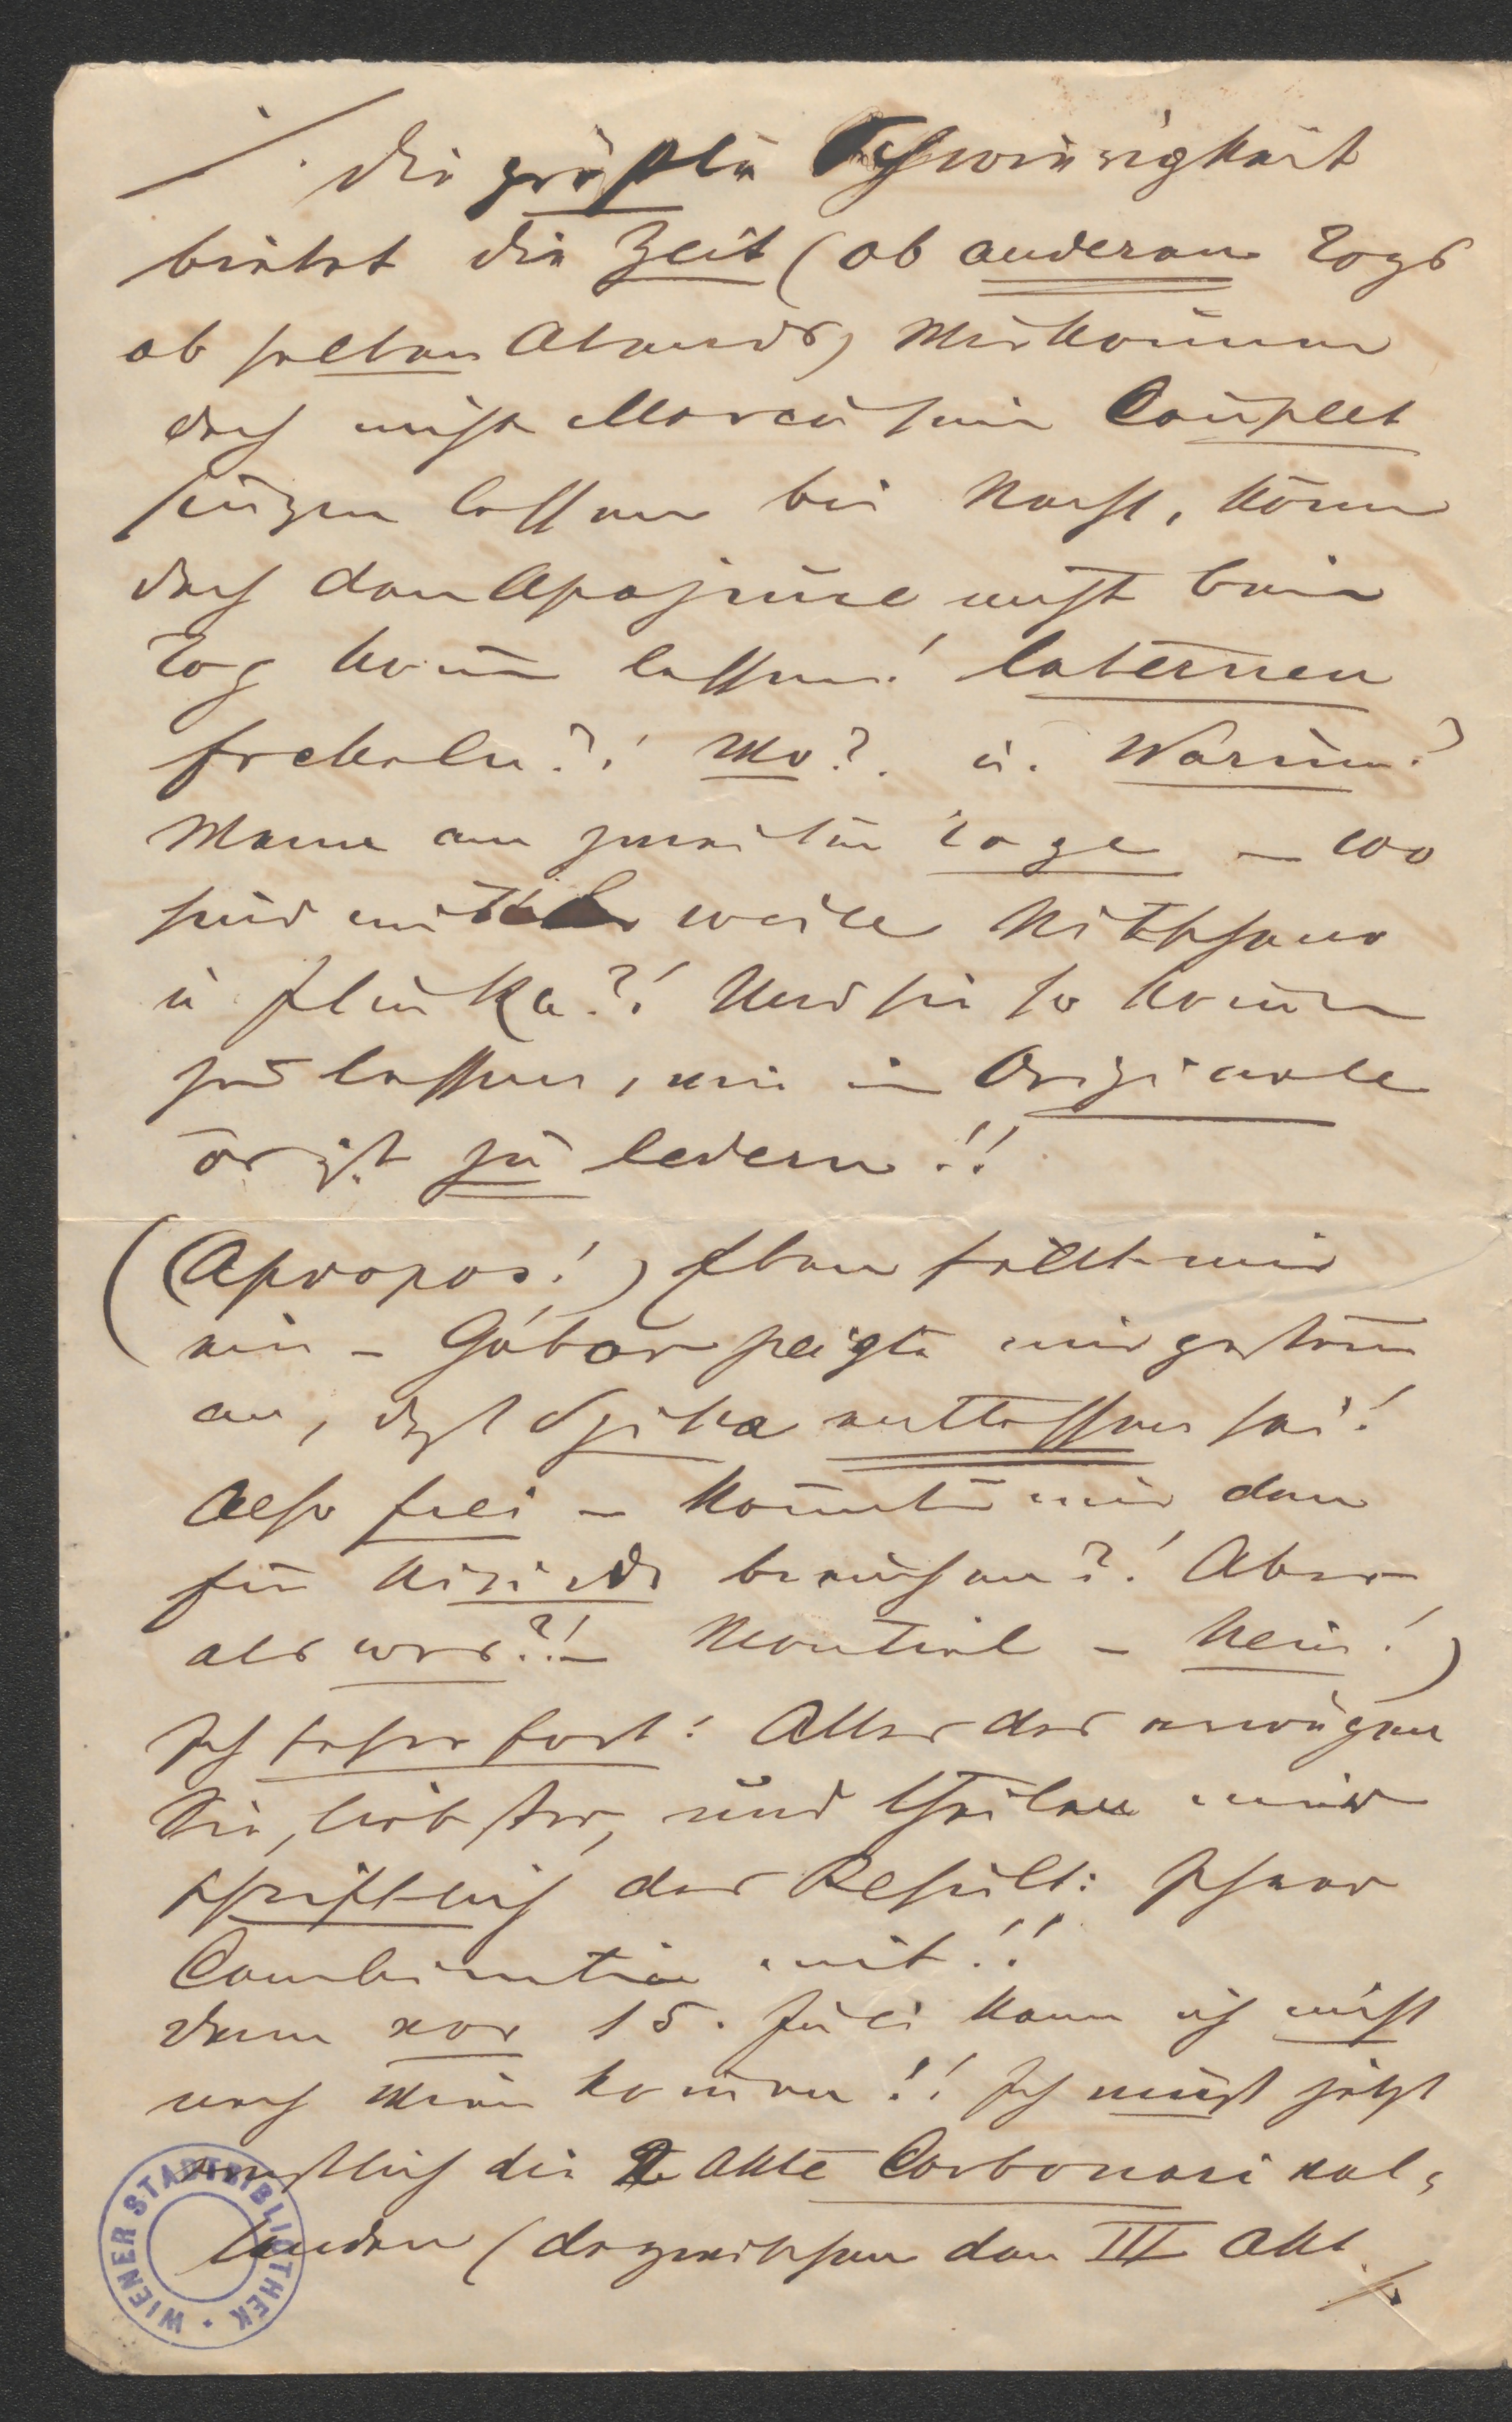 ./. Die größte Schwierigkeit
bietet die Zeit (ob anderen Tags
ob selben Abends) Wir können
doch nicht Marcu sein Couplet
singen lassen bei Nacht, könn̄
doch den Apajune nicht beim
Tag kom̄ lassen! Laternen
fackeln?! Wo? u. Warum?
Wenn am zweiten Tage – wo
sind mittlerweile
u Ilinka?! Und sie so kom̄en
zu lassen, wie im Originale
ist zu ledern!!
(Apropos!) Eben fällt mir
ein – Gábor zeigte mir gestern
an, daß Szika entlassen sei!
Also frei – könnten wir den
für brauchen?! Aber
als was?!– Montiel – Nein!)
Ich fahre fort: Alles das erwägen
Sie, liebster, und theilen mir
schriftlich das Result: Ihrer
Combination mit!!
Denn vor 15. Juli kann ich nicht
nach Wien kom̄en!! Ich muß jetzt
ernstlich die 2 Akte Carbonari vol-
lenden (dazwischen den III Akt
./.
WIENER STADTBIBLIOTHEK